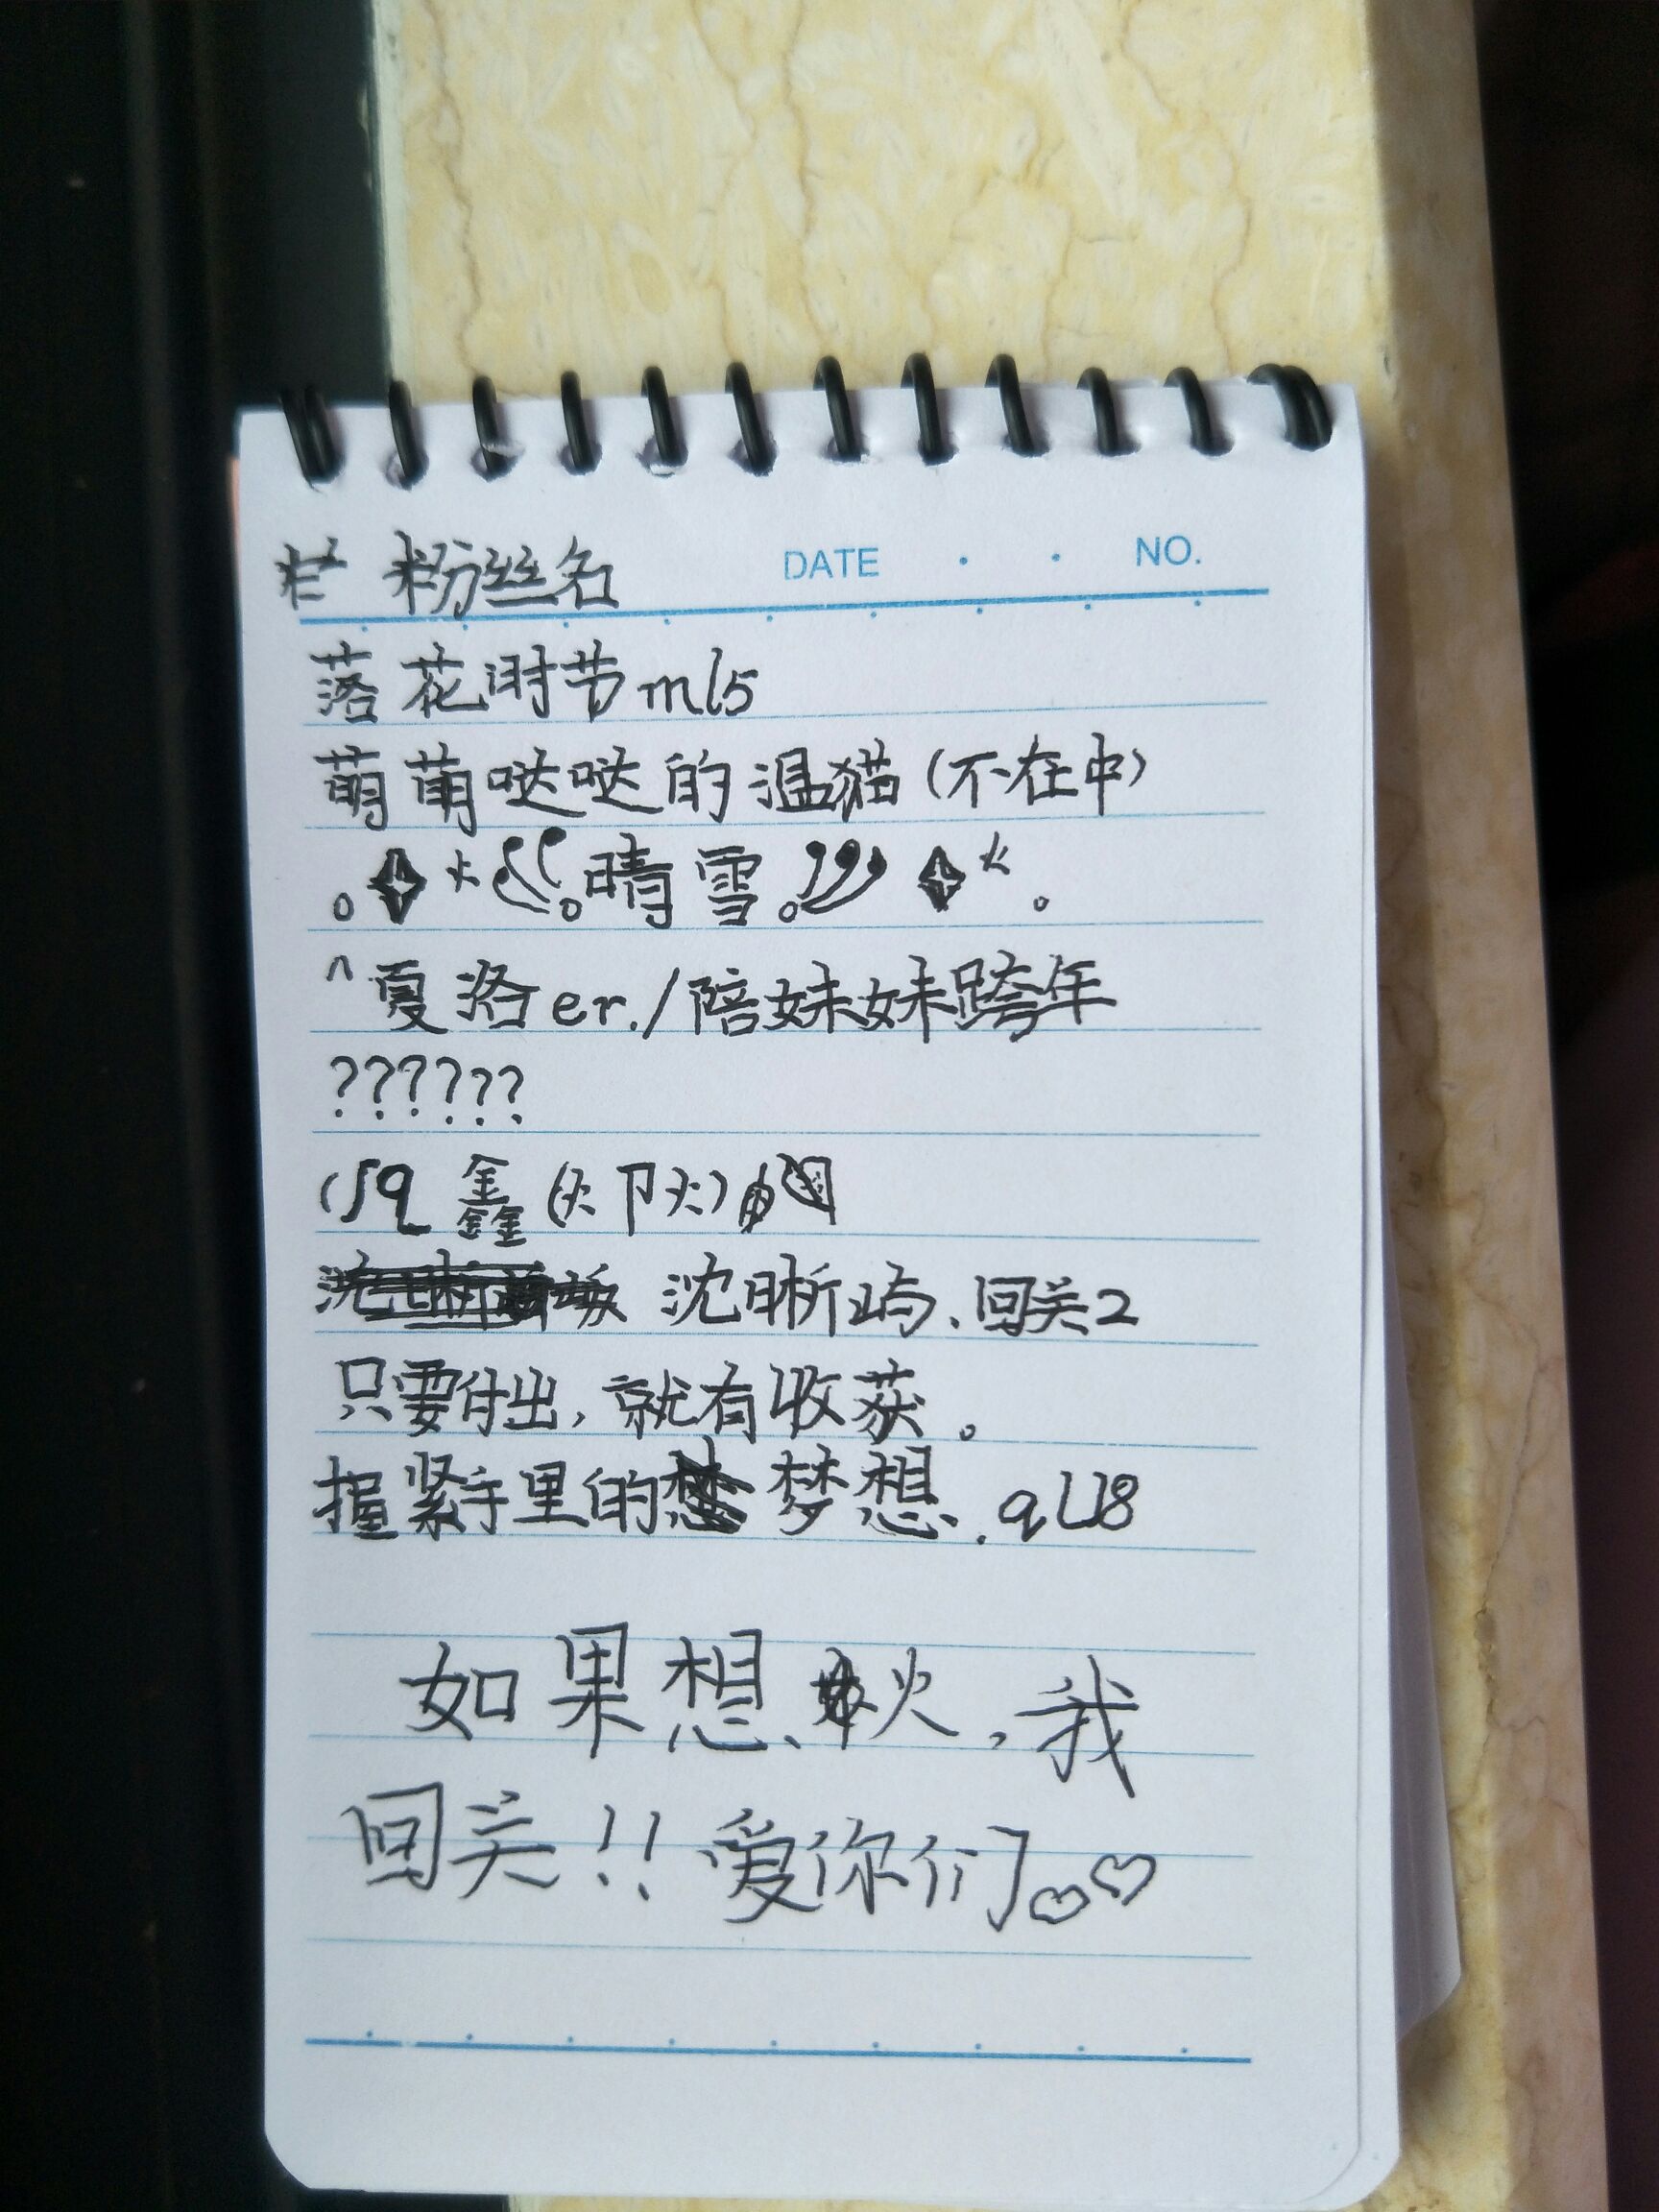 粉丝名 DATE NO.
落花时节ml5
萌萌哒哒的温猫(不在中)
晴雪
^夏洛er./陪妹妹跨年
??????
鑫
沈晰屿、回关2
只要付出,就有收获。
握紧手里的梦想.qU8
如果想火,我
回关!!爱你们。♡♡